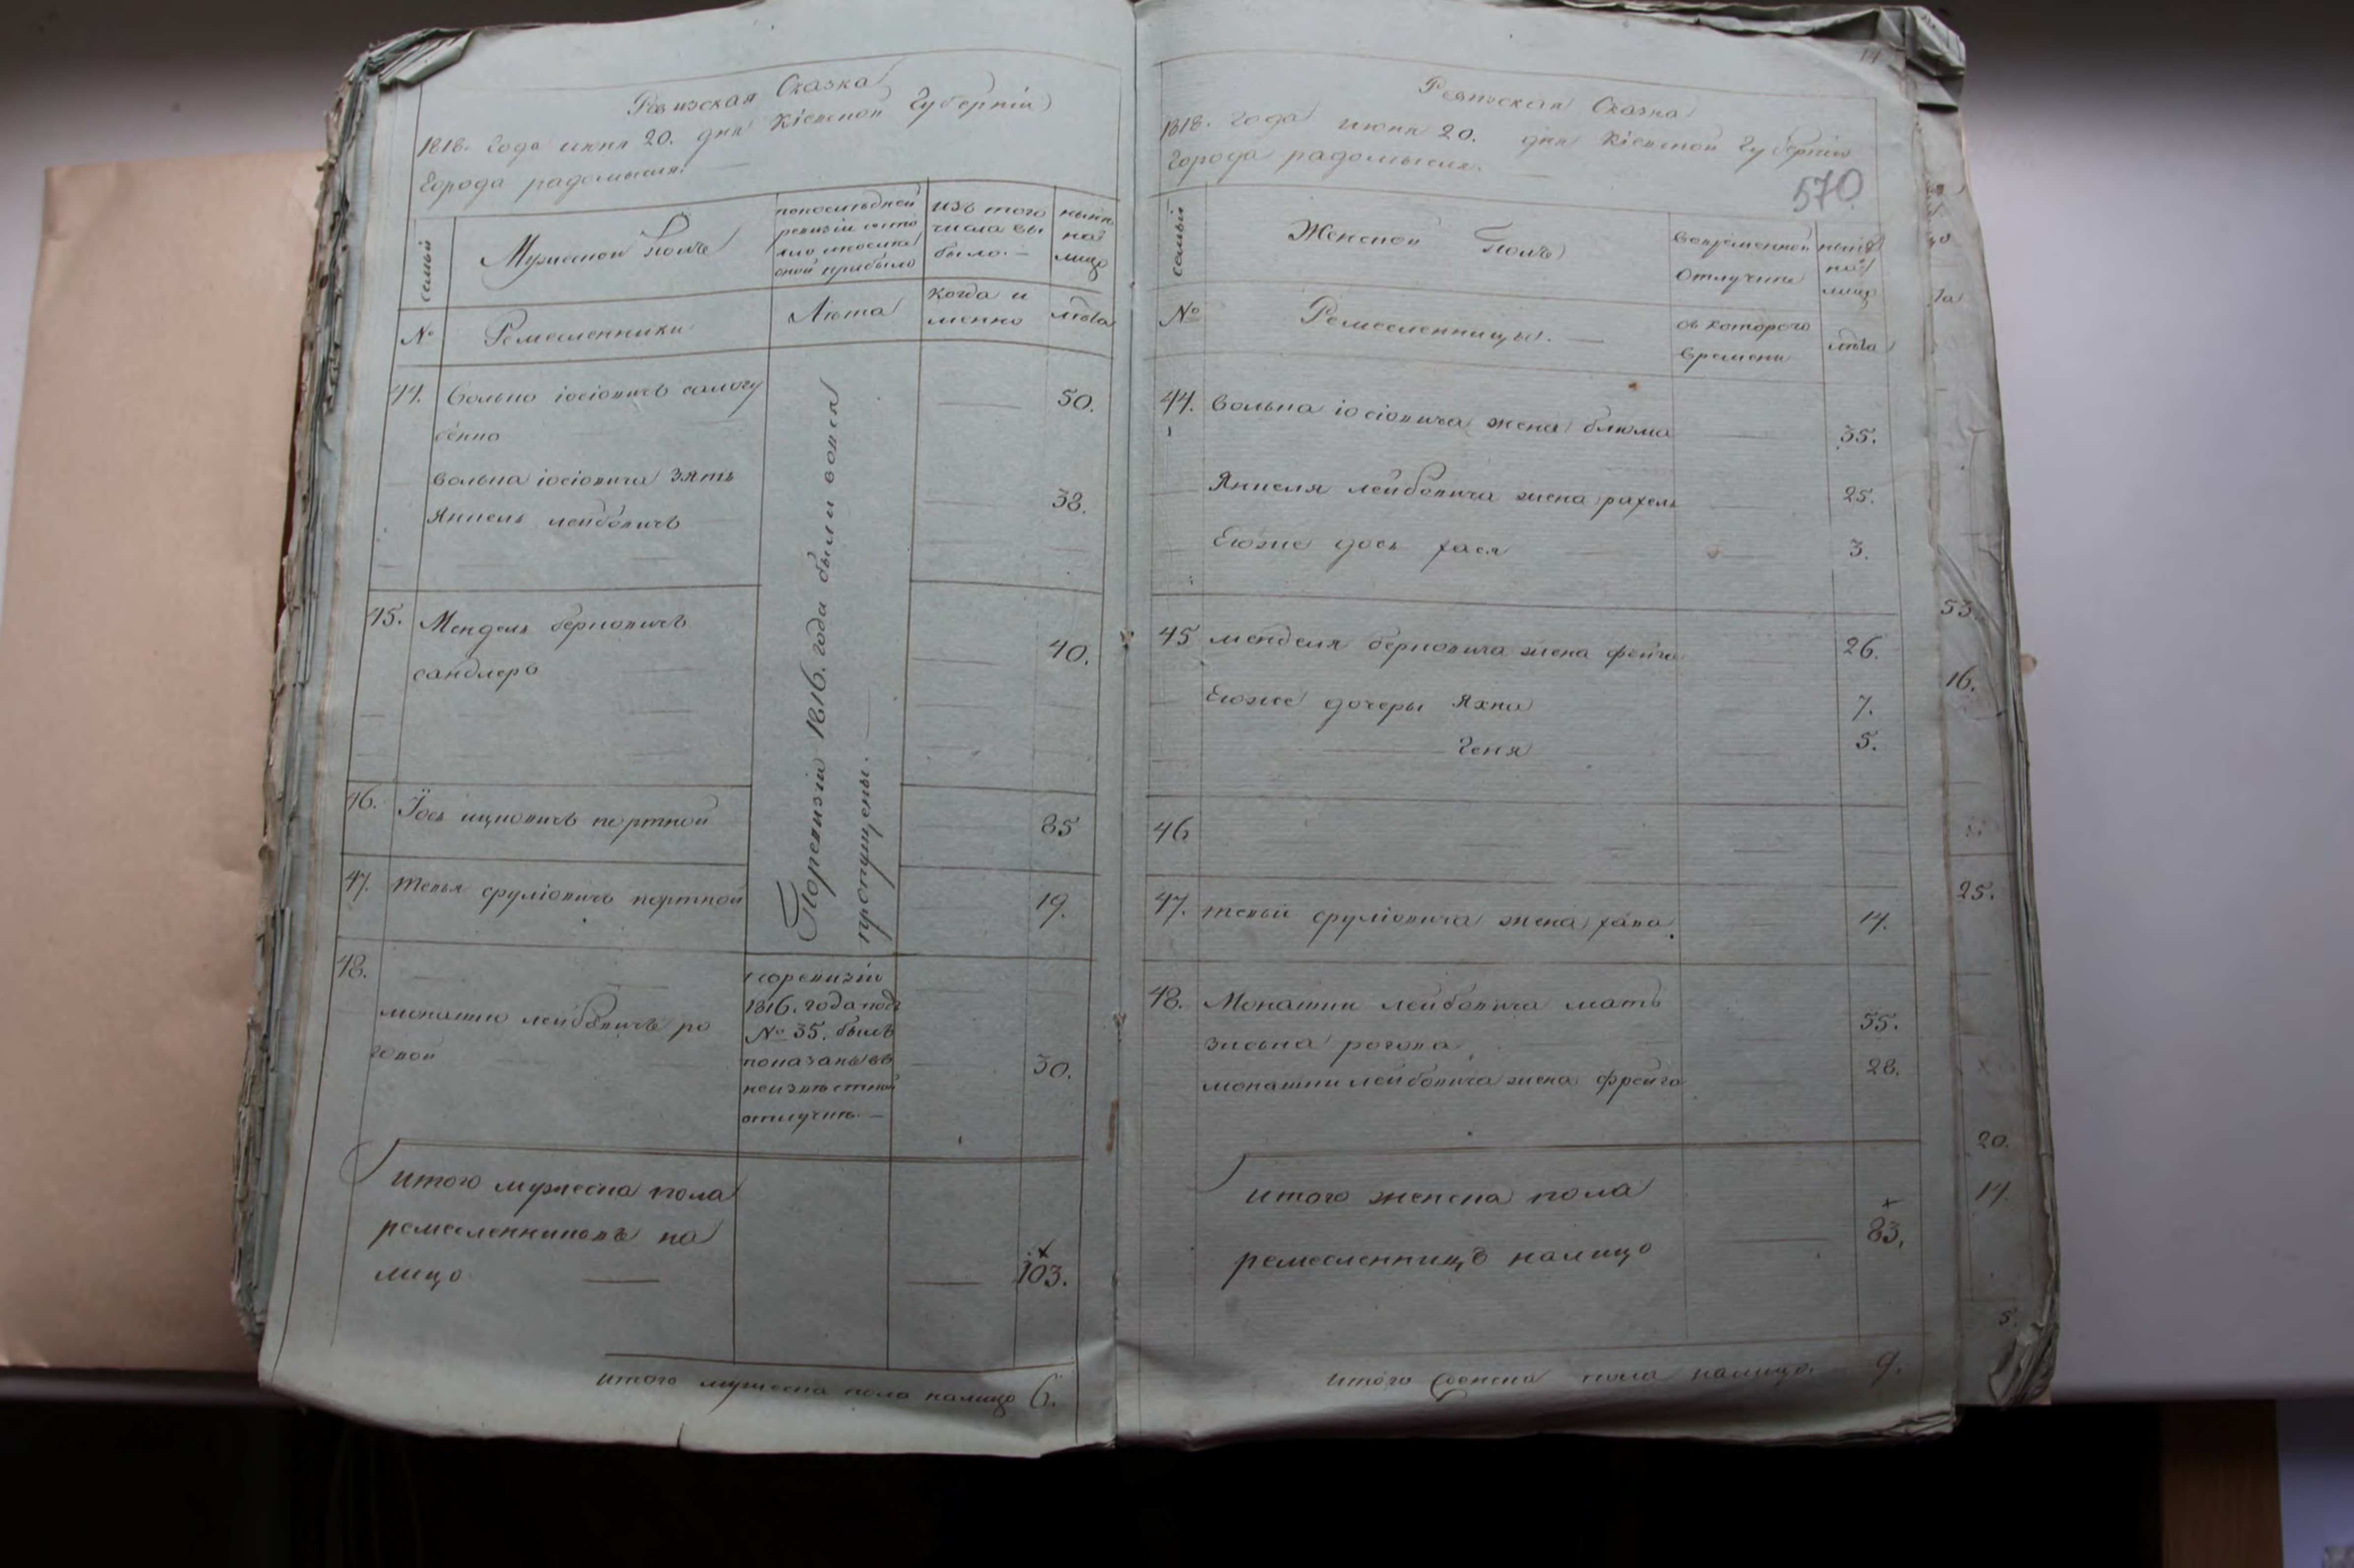 Ревизская Сказка
1818. года июня 20. дня Кіевской Губерніи
Города радомысля.
семьи
Мужеской Полъ
попоследней
ревизіи состо
яло ипосле
оной прибыло
изъ того
числа вы
было.
ныне
на
лицо
№
Ремесленники
Лета
когда и
менно
лета
44. Волько іосіовичъ
50.
волька іосіовича зять
Янкель лейбовичъ 38.
Поревизіи 1816. года были вовся
пропущены.
45. Мендель берковичъ
сандлеръ 40.
46. Іось ицковичъ портной 85
47. тевья сруліовичъ портной 19.
48.
монашко лейбовичъ ро
говой 30.
поревизіи
1816. года под
№ 35. былъ
показанъ въ
неизвестной
отлучке.
итого мужеска пола
ремесленниковъ на
лицо 103.
итого мужеска пола налицо 6.
14
Ревизская Сказка
1818. года июня 20. дня Кіевской Губерніи
Города радомысля.
570
семьи
Женской Полъ
вовременной
отлучке
ныне
на
лицо
№
Ремесленницы.
съ которого
времени
лета
44. Волька іосіовича жена блюма 35.
Янкеля лейбовича жена рахель 25.
Егоже дочь хася 3.
45 менделя берковича жена фейга 26.
Егоже дочеры Яхна 7.
Геня 5.
46
47. тевьи сруліовича жена хава. 14.
48. Монашки лейбовича мать
зисьля рогова 55.
монашки лейбовича жена фрейга 28.
итого женска пола
ремесленницъ налицо 83.
итого женска пола налицо. 9.
53.
16.
25.
20.
14.
5.